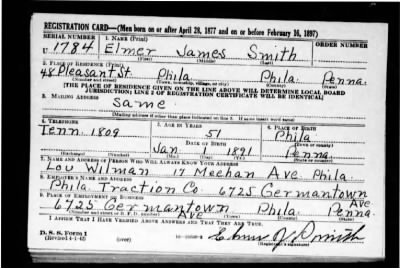 REGISTRATION CARD—(Men born on or after April 28, 1877 and on or before February 16, 1897)
SERIAL NUMBER 1. NAME (Print) ORDER NUMBER
U 1784 Elmer James Smith
(First) (Middle) (Last)
2. PLACE OF RESIDENCE (Print)
48 Pleasant St. Phila Phila. Penna.
(Number and street) (Town, township, village, or city) (County) (State)
[THE PLACE OF RESIDENCE GIVEN ON THE LINE ABOVE WILL DETERMINE LOCAL BOARD
JURISDICTION; LINE 2 OF REGISTRATION CERTIFICATE WILL BE IDENTICAL]
3. MAILING ADDRESS
Same
(Mailing address if other than place indicated on line 2. If same insert word same)
4. TELEPHONE 5. AGE IN YEARS 6. PLACE OF BIRTH
Tenn. 1809 51 Phila
DATE OF BIRTH
Jan 1 1891 Penna.
(Exchange) (Number) (Mo.) (Day) (Yr.) (State or country)
7. NAME AND ADDRESS OF PERSON WHO WILL ALWAYS KNOW YOUR ADDRESS
Lou Wilman 17 Meehan Ave Phila.
8. EMPLOYER'S NAME AND ADDRESS
Phila Traction Co. 6725 Germantown Ave
9. PLACE OF EMPLOYMENT OR BUSINESS
6725 Germantown Ave Phila Phila Penna
(Number and street or R. F. D. number) (Town) (County) (State)
I AFFIRM THAT I HAVE VERIFIED ABOVE ANSWERS AND THAT THEY ARE TRUE.
D. S. S. Form 1
(Revised 4-1-42) (over) Elmer J Smith
(Registrant's signature)